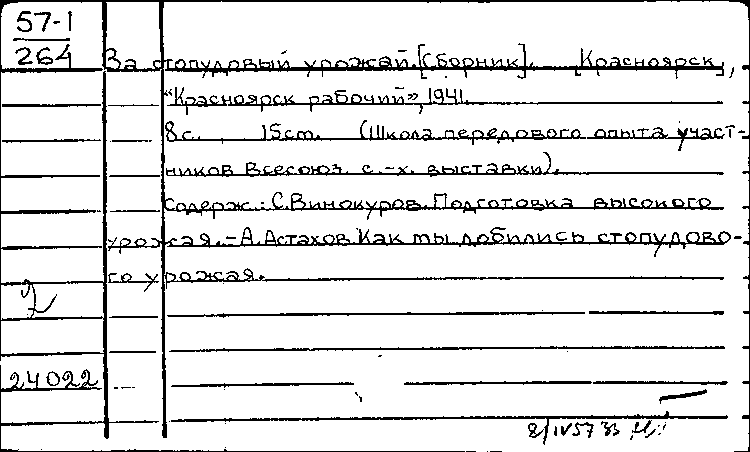 57-1
264
За стопудовый урожай. [Сборник]. [Красноярск],
"Красноярск рабочий", 1941.
8с. 15cm. (Школа передового опыта участ-
ников Всесоюз. с.-х. выставки).
Содерж.: С.Винокуров. Подготовка высокого
урожая. - А.Астахов. Как мы добились стопудово-
го урожая.
24022
8/IV57